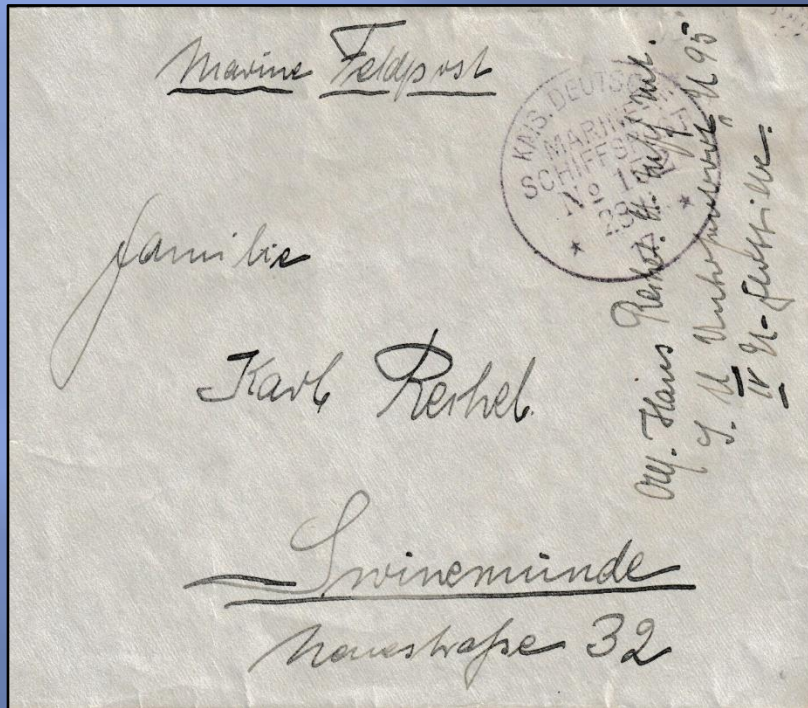 Marine Feldpost
KAIS. DEUTSCHE
MARINE-
SCHIFFSPOST
No 1
23
Familie
Karl Reschel.
Swinemünde
Neuestraße 32
Hans
S. M. Unterseeboot "U 95"
IV U-Flottille.